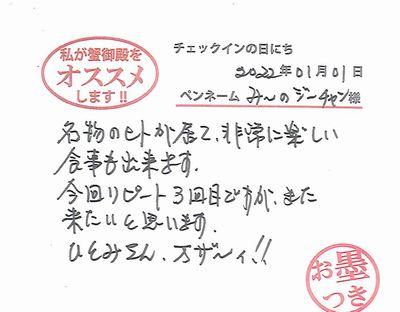 私が蟹御殿を
オススメ
します!!
チェックインの日にち
2022年01月01日
ペンネーム みーのジーチャン様
名物のヒトが居て、非常に楽しい
食事も出来ます.
今回リピート3回目ですが、また
来たいと思います.
ひとみさん、万ザーイ!!
お墨
つき